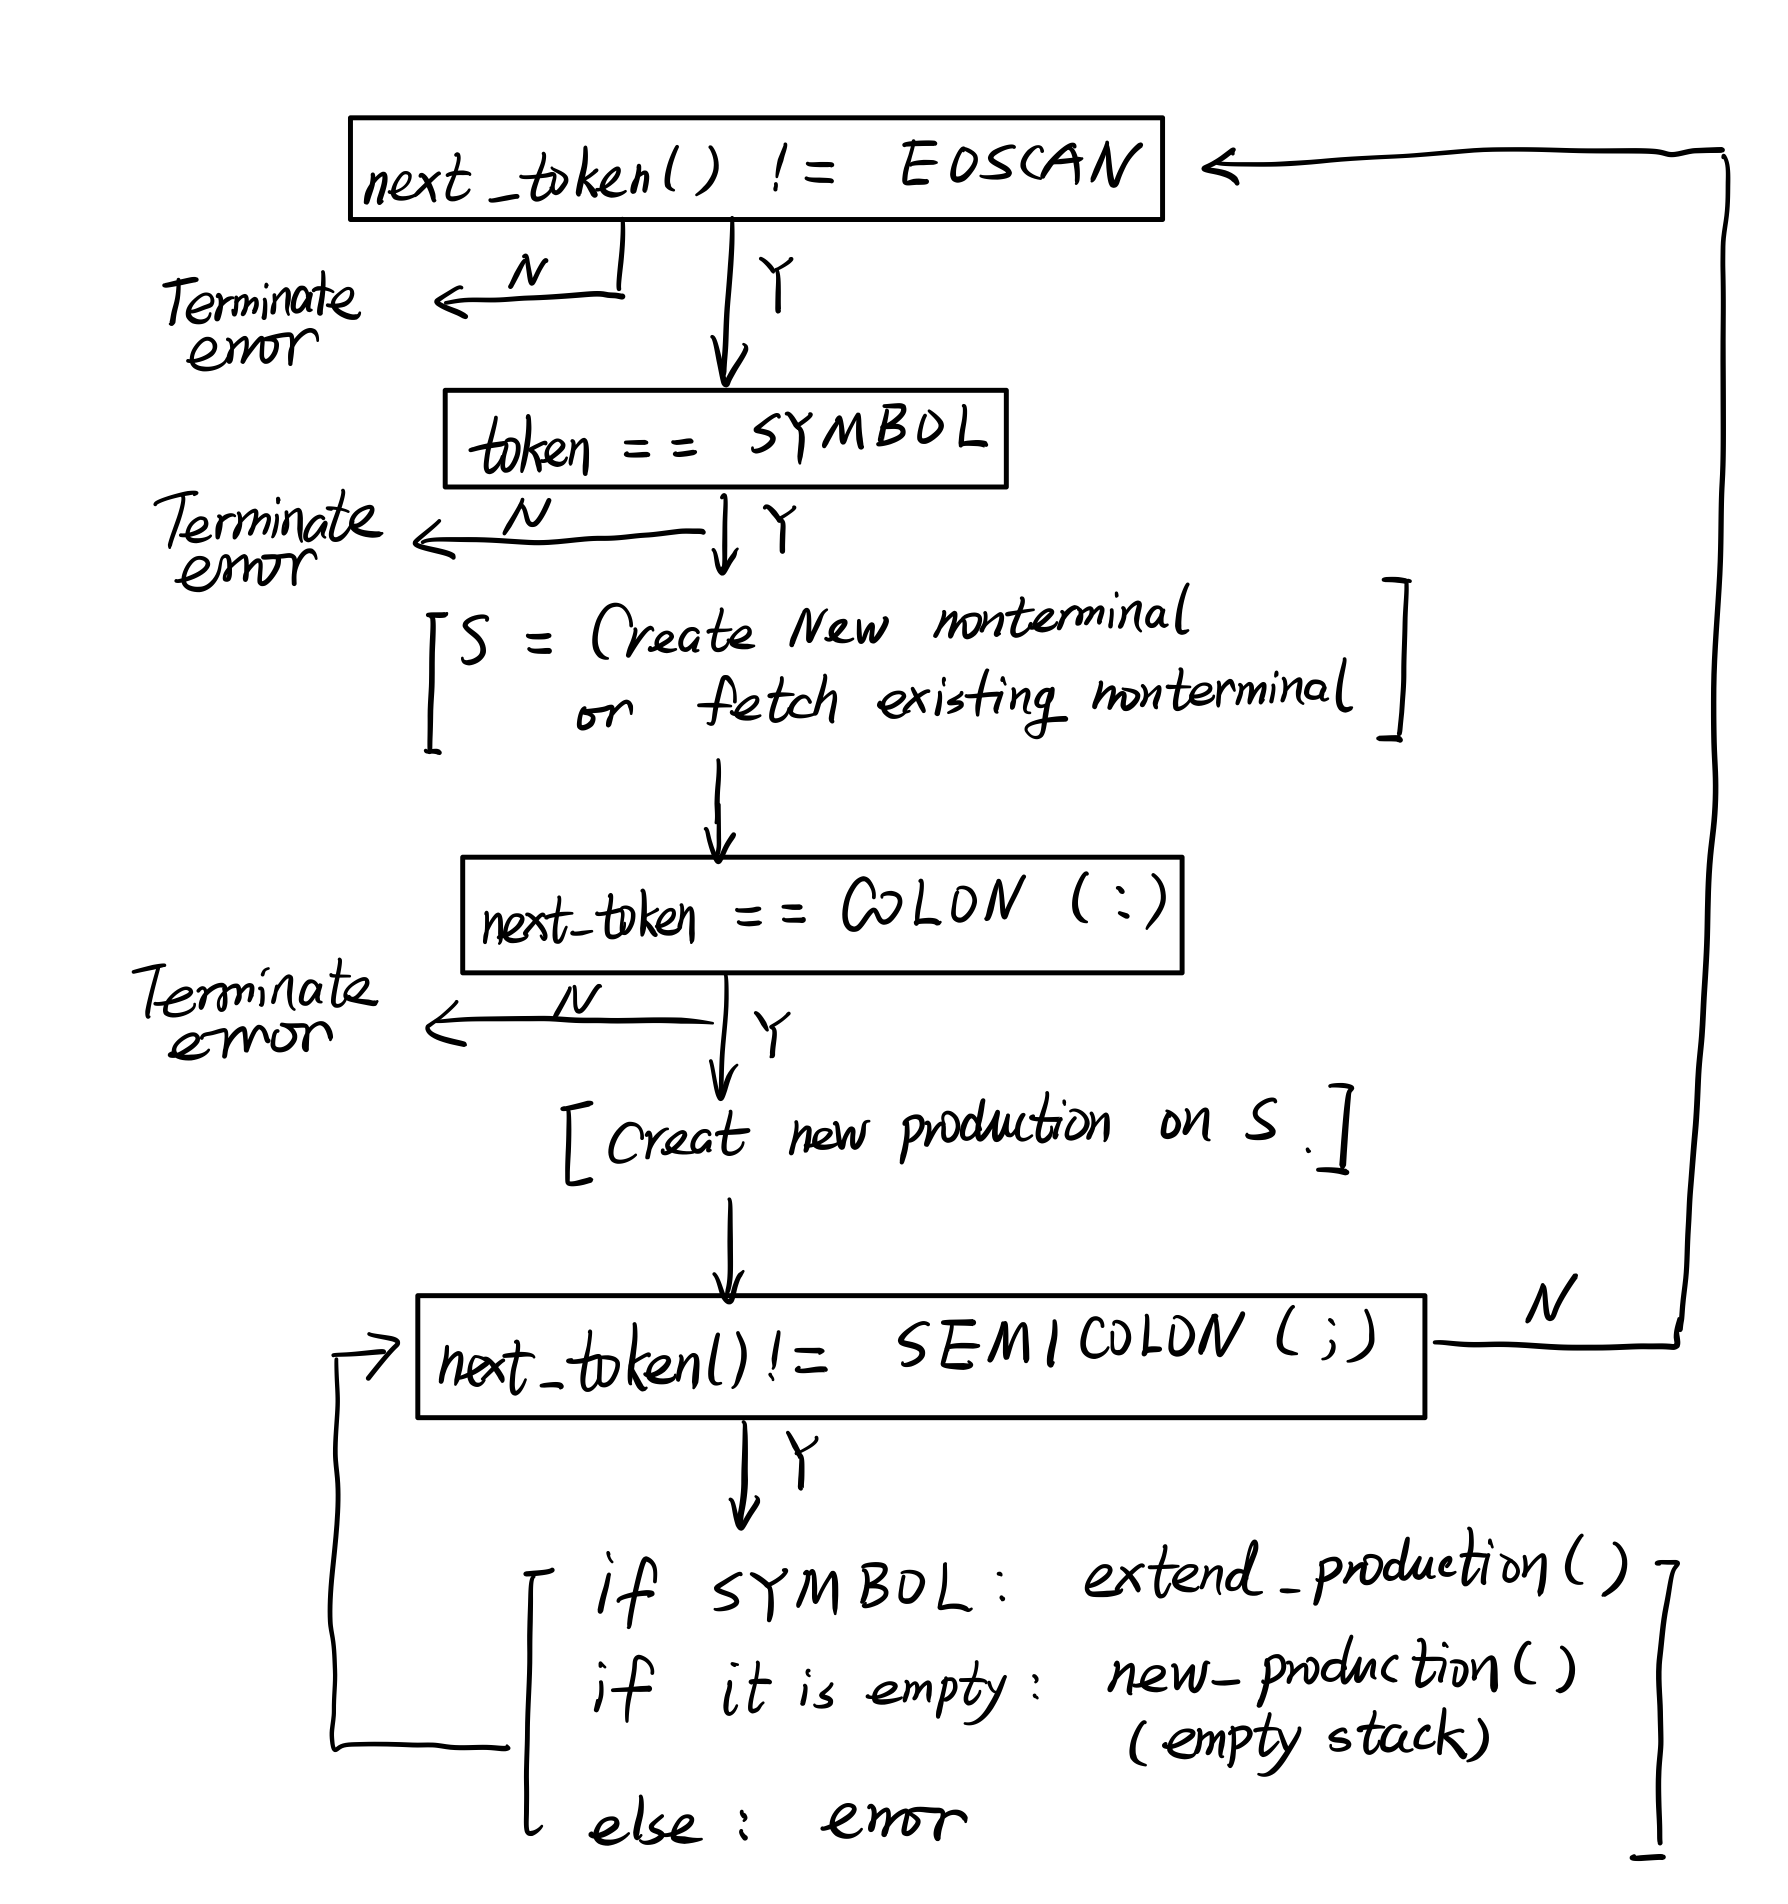 next_token() != EOSCAN
N
Y
Terminate
error
token == SYMBOL
N
Y
Terminate
error
[S = Create New nonterminal
or fetch existing nonterminal]
next_token == COLON (:)
N
Y
Terminate
error
[Creat new production on S.]
next_token() != SEMICOLON (;)
N
Y
[if SYMBOL: extend_production()
if it is empty: new_production()
(empty stack)
else: error]